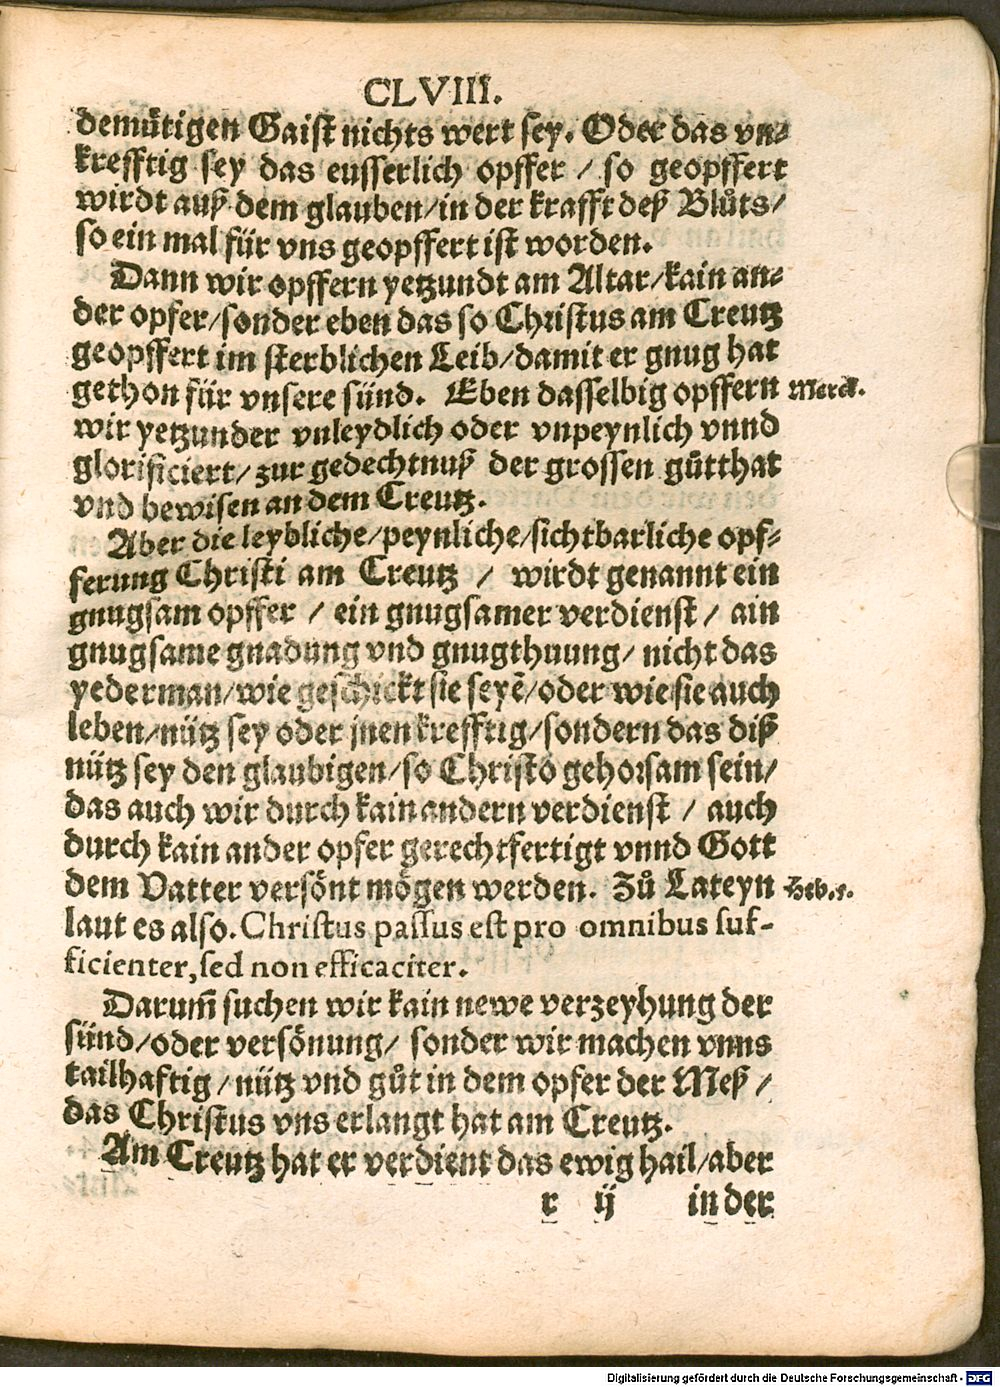 CLVIII.
demuͤtigen Gaist nichts wert sey. Oder das vn⸗
krefftig sey das eusserlich opffer / so geopffert
wirdt auß dem glauben/in der krafft deß Bluͦts/
so ein mal für vns geopffert ist worden.
Dann wir opffern yetzundt am Altar/kain an⸗
der opfer/sonder eben das so Christus am Creutz
geopffert im sterblichen Leib/damit er gnug hat
gethon für vnsere sünd. Eben dasselbig opffern Merck.
wir yetzunder vnleydlich oder vnpeynlich vnnd
glorificiert/ zur gedechtnuß der grossen guͦtthat
vnd bewisen an dem Creutz.
Aber die leybliche/peynliche/sichtbarliche opf⸗
ferung Christi am Creutz / wirdt genannt ein
gnugsam opffer / ein gnugsamer verdienst / ain
gnugsame gnadung vnd gnugthuung/ nicht das
yederman/wie geschickt sie seyē/oder wie sie auch
leben/nütz sey oder jnen krefftig/sondern das diß
nütz sey den glaubigen/so Christo gehorsam sein/
das auch wir durch kain andern verdienst / auch
durch kain ander opfer gerechtfertigt vnnd Gott
dem Vatter versoͤnt moͤgen werden. Zuͦ Lateyn Heb.5.
laut es also. Christus passus est pro omnibus suf-
ficienter, sed non efficaciter.
Darum̃ suchen wir kain newe verzeyhung der
sünd/oder versoͤnung/ sonder wir machen vnns
tailhaftig / nütz vnd guͦt in dem opfer der Meß /
das Christus vns erlangt hat am Creutz.
Am Creutz hat er verdient das ewig hail/aber
r ij in der
Digitalisierung gefördert durch die Deutsche Forschungsgemeinschaft - DFG